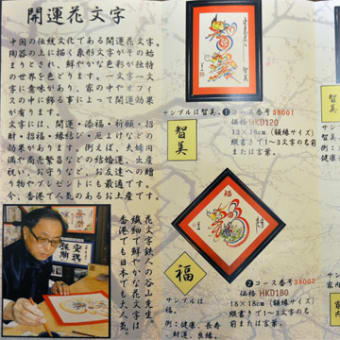 開運花文字
中国の伝統文化である開運花文字。
陶器の上に描く象形文字が始
まりとされ、鮮やかな色彩が独特
の世界を色どります。一文字一文
字に意味があり、家の中やオフィ
スの中に飾る事によって開運効果
が有ります。
文字には、開運・添福・祈願・
財・招福・縁起・厄よけなどの
効果があります。例えば、夫婦円
満や商売繁盛などの
祝い、お守り、お土産、贈
り物やプレゼントにもお
花文字鉄人の谷山先生。
繊細で鮮やかな花文字は
香港でも日本でも大人気。
智美
サンプルは智美。 ❶コース番号38001
価格 HKD120
13×18cm(額縁サイズ)
縦書きで1〜3文字の名前
または言葉。
智美
福
福
❷コース番号38002
価格 HKD180
18×18cm(額縁サイズ)
縦書きで1〜3文字の名
前または言葉。
サンプルは
福。
例:健康、長寿
財運、良縁、
サン
家内
例:
健康